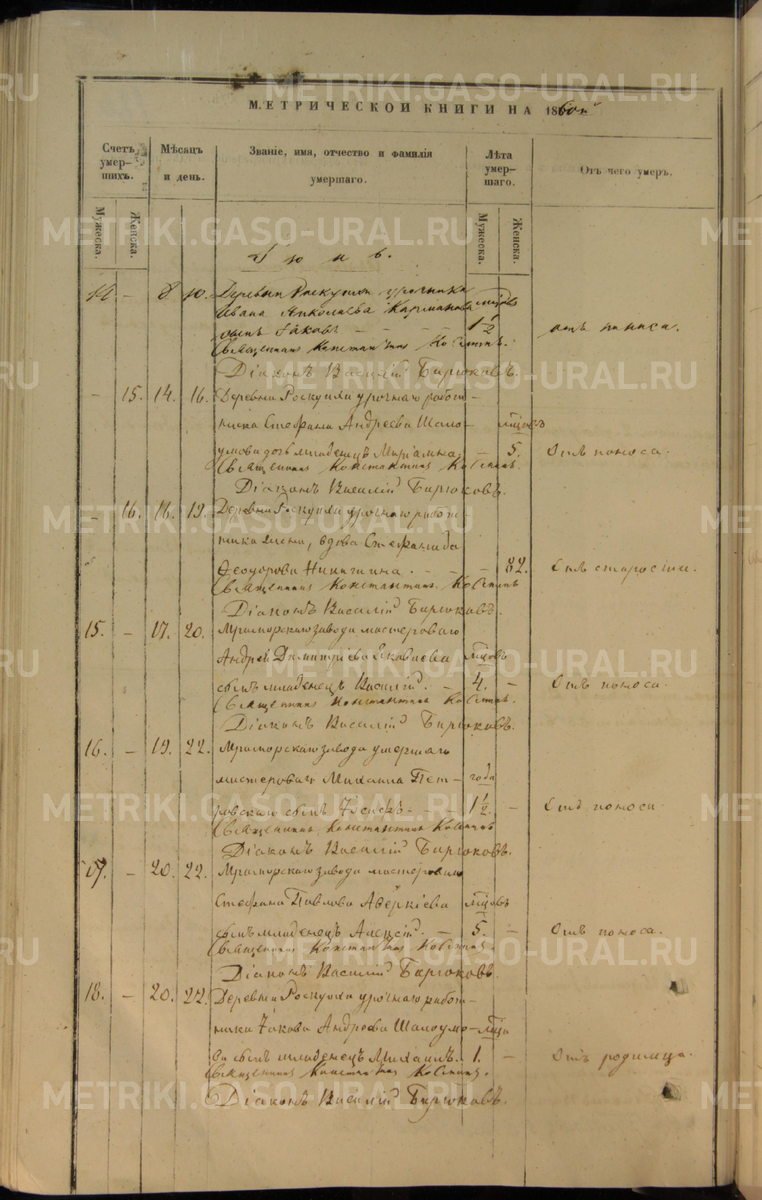 METRIKI.GASO-URAL.RU
МЕТРИЧЕСКОЙ КНИГИ НА 1860й
Счетъ умер-шихъ.
Мужеска.
Женска.
Мѣсяцъ и день.
Званіе, имя, отчество и фамилія умершаго.
Лѣта умер-шаго.
Мужеска.
Женска.
Отъ чего умеръ.
Іюнь.
14. – 8 10. Деревни Роскухи урочника
Ивана Николаева
сынъ Іаковъ – – – – 1½ отъ поноса.
Священникъ Константинъ
Діаконъ Василій Бирюковъ.
– 15. 14. 16. Деревни Роскухи урочнаго работ-
ника Стефана Андреева Шало- мѣсяцовъ
умова дочь младенецъ Маріамна. – 5. Отъ поноса.
Священникъ Константинъ
Діаконъ Василій Бирюковъ.
– 16. 16. 19. Деревни Роскухи урочнаго работ-
ника жена, вдова Стефанида
Феодорова – – 82. Отъ старости.
Священникъ Константинъ
Діаконъ Василій Бирюковъ.
15. – 17. 20. Мраморскаго завода мастероваго
Андрея Димитріева Яковлева мѣсяцовъ
сынъ младенецъ Василій. – 4. – Отъ поноса.
Священникъ Константинъ
Діаконъ Василій Бирюковъ.
16. – 19. 22. Мраморскаго завода умершаго
мастероваго Михаила Пет- года
ровскаго сынъ – – 1½. – Отъ поноса
Священникъ Константинъ
Діаконъ Василій Бирюковъ.
17. – 20. 22. Мраморскаго завода мастероваго
Стефана Павлова Аверкіева мѣсяцовъ
сынъ младенецъ Алексій. – 5. – Отъ поноса.
Священникъ Константинъ
Діаконъ Василій Бирюковъ
18. – 20. 22. Деревни Роскухи урочнаго работ-
ника Іакова Андреева Шалоумо-
ва сынъ младенецъ Михаилъ. 1. – Отъ родимца.
Священникъ Константинъ
Діаконъ Василій Бирюковъ.